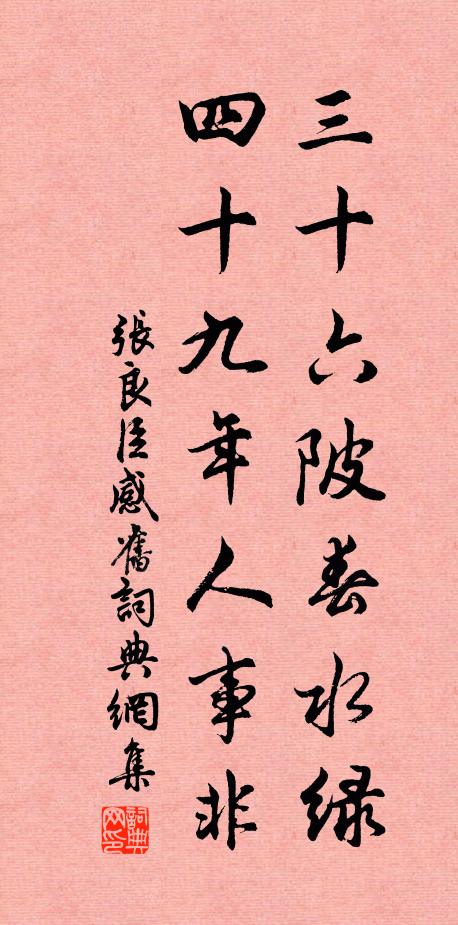 三十六陂春水緑
四十九年人事非
張良臣感舊詞典網集
詞典网印